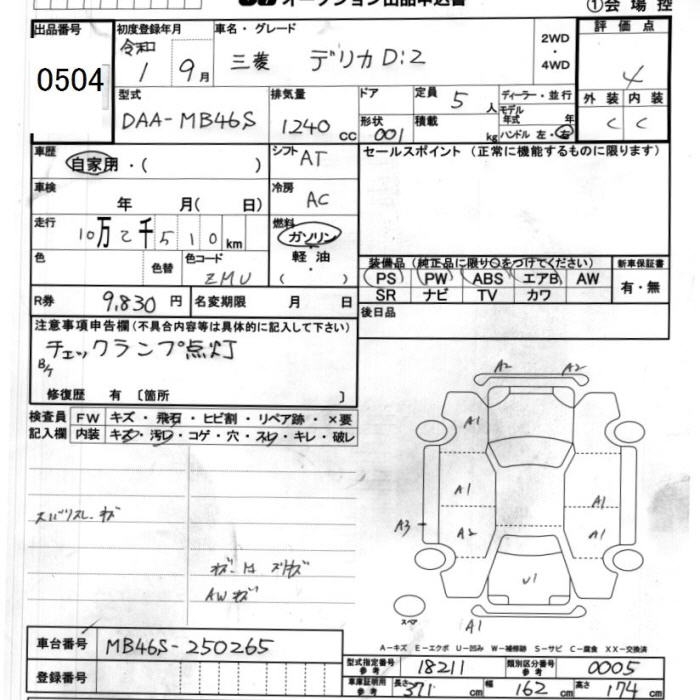 オークション出品申込書
①会場控
出品番号
0504
初度登録年月
令和
1 9月
車名・グレード
三菱 デリカD:2
2WD
・
4WD
評価点
4
外装 内装
C C
型式
DAA-MB46S
排気量
1240 cc
ドア
形状
001
定員 5 人
積載 kg
ディーラー・並行
モデル
年式 年
ハンドル 左・右
車歴
自家用・( )
シフト AT
セールスポイント (正常に機能するものに限ります)
車検
年 月( 日)
冷房
AC
走行
10万2千510km
燃料
ガソリン
軽油
・( )
色
色替
色コード
ZMU
装備品 (純正品に限り○をつけてください)
新車保証書
PS PW ABS エアB AW
SR ナビ TV カワ
有・無
R券 9,830円
名変期限 月 日
後日品
注意事項申告欄 (不具合内容等は具体的に記入して下さい)
チェックランプ点灯
修復歴 有 〔箇所 〕
検査員
記入欄
FW キズ・飛石・ヒビ割・リペア跡・×要
内装 キズ・汚れ・コゲ・穴・スレ・キレ・破レ
AWキズ
A2 A2
A1
A1 A1
A3 A2 A1
U1
スペア
A1
A-キズ E-エクボ U-凹み W-補修跡 S-サビ C-腐食 XX-交換済
車台番号 MB46S-250265
登録番号
型式指定番号
参考
18211
類別区分番号
参考
0005
車庫証明用
参考
長さ 371 cm 幅 162 cm 高さ 174 cm